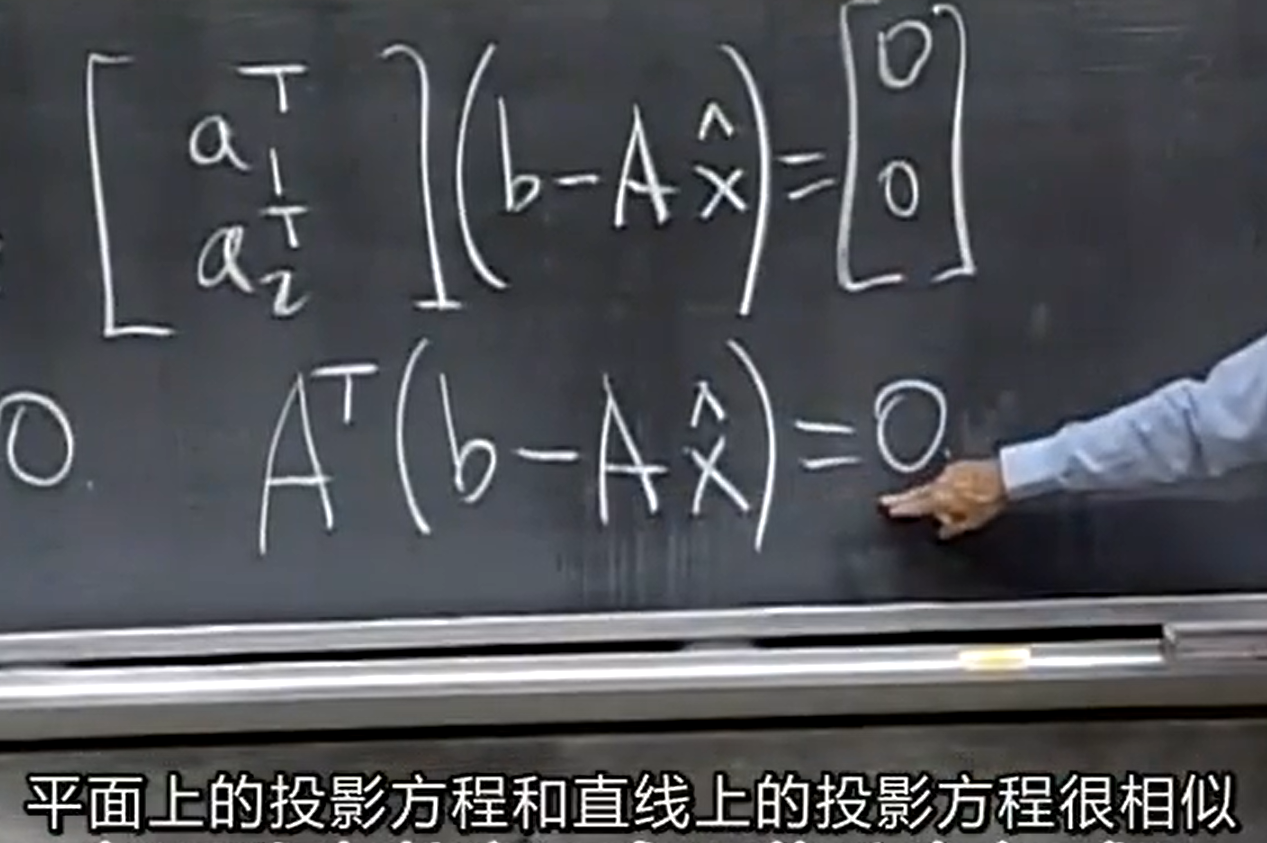 [a₁ᵀ a₂ᵀ] (b - A x̂) = [0 0]
0. Aᵀ(b - A x̂) = 0.
平面上的投影方程和直线上的投影方程很相似